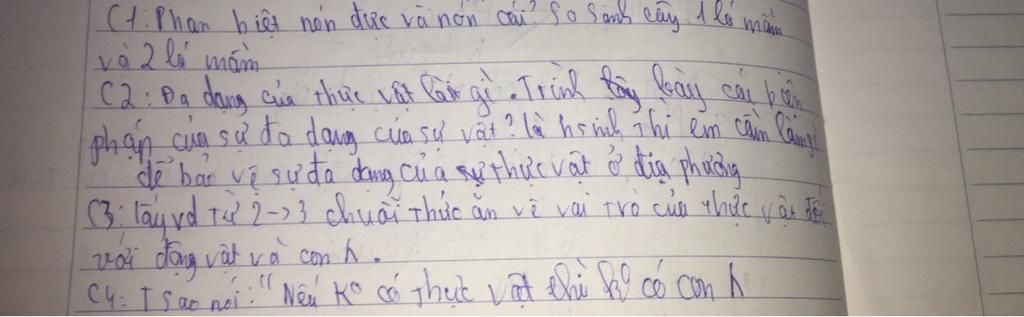 C1: Phan biệt nón đực và nón cái? So sánh cây 1 lá mầm
và 2 lá mầm
C2: Đa dạng của thực vật là gì. Trình bày các biện
pháp của sự đa dạng của sự vật? là hsinh thì em cần làm gì
để bảo vệ sự đa dạng của thực vật ở địa phương
C3: lấy vd từ 2->3 chuỗi thức ăn về vai trò của thực vật đối
với động vật và con h.
C4: Tsao nói: "Nếu k° có thực vật thì k° có con h